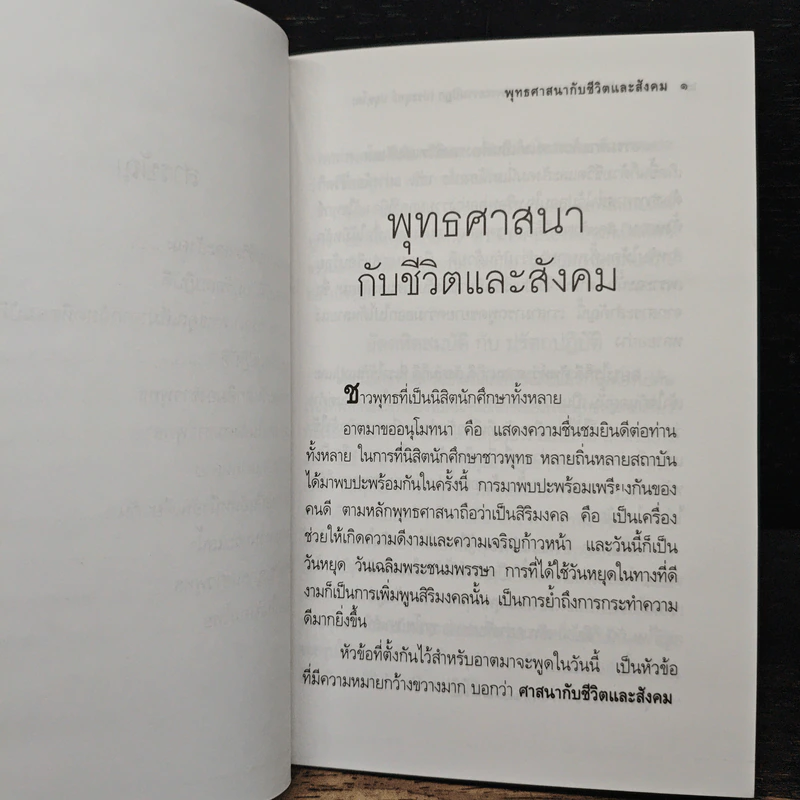 พุทธศาสนากับชีวิตและสังคม ๑
พุทธศาสนา
กับชีวิตและสังคม
ชาวพุทธที่เป็นนิสิตนักศึกษาทั้งหลาย
อาตมาขออนุโมทนา คือ แสดงความชื่นชมยินดีต่อท่าน
ทั้งหลาย ในการที่นิสิตนักศึกษาชาวพุทธ หลายถิ่นหลายสถาบัน
ได้มาพบปะพร้อมกันในครั้งนี้ การมาพบปะพร้อมเพรียงกันของ
คนดี ตามหลักพุทธศาสนาถือว่าเป็นสิริมงคล คือ เป็นเครื่อง
ช่วยให้เกิดความดีงามและความเจริญก้าวหน้า และวันนี้ก็เป็น
วันหยุด วันเฉลิมพระชนมพรรษา การที่ได้ใช้วันหยุดในทางที่ดี
งามก็เป็นการเพิ่มพูนสิริมงคลนั้น เป็นการย้ำถึงการกระทำความ
ดีมากยิ่งขึ้น
หัวข้อที่ตั้งกันไว้สำหรับอาตมาจะพูดในวันนี้ เป็นหัวข้อ
ที่มีความหมายกว้างขวางมาก บอกว่า ศาสนากับชีวิตและสังคม